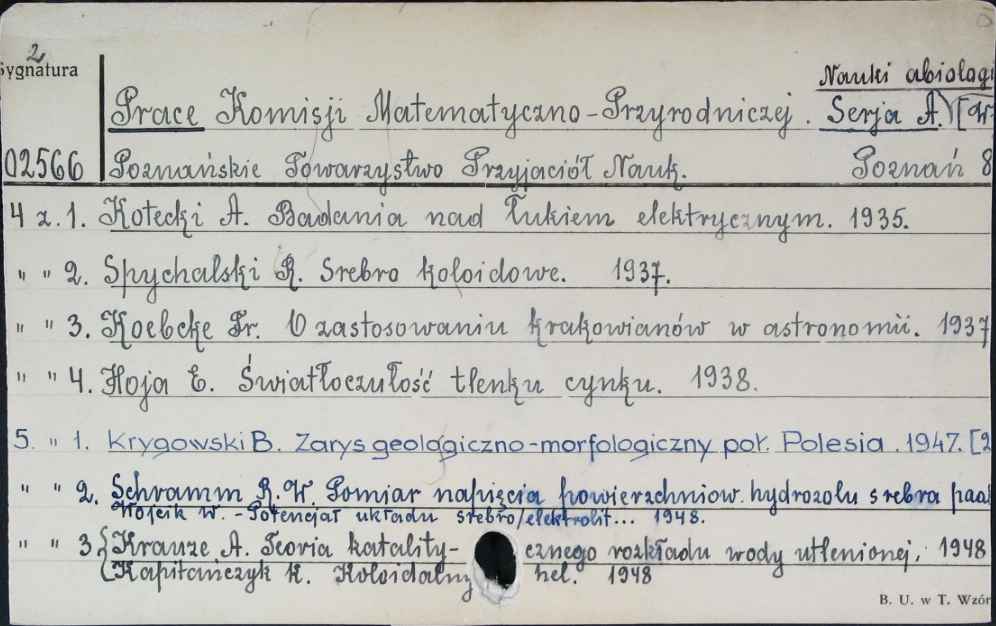 2
Sygnatura
Nauki abiologi
Prace Komisji Matematyczno-Przyrodniczej. Serja A.) [W
02566 Poznańskie Towarzystwo Przyjaciół Nauk. Poznań 8
4 z. 1. Kotecki A. Badania nad łukiem elektrycznym. 1935.
" " 2. Spychalski R. Srebro koloidowe. 1937.
" " 3. Koebcke Fr. O zastosowaniu krakowianów w astronomii. 1937
" " 4. Hoja E. Światłoczułość tlenku cynku. 1938.
5. " 1. Krygowski B. Zarys geologiczno-morfologiczny poł. Polesia. 1947. [2
" " 2. Schramm R.W. Pomiar napięcia powierzchniow. hydrozolu srebra
Wójcik W. - Potencjał układu srebro/elektrolit... 1948.
" " 3 { Krauze A. Teoria katality- cznego rozkładu wody utlenionej. 1948
Kapitańczyk K. Koloidalny hel. 1948
B. U. w T. Wzór